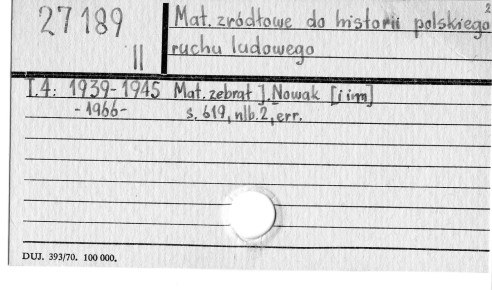 2
27189 Mat. źródłowe do historii polskiego
II ruchu ludowego
T.4: 1939-1945 Mat. zebrał J. Nowak [i inni]
- 1966 - s. 619, nlb. 2, err.
DUJ. 393/70. 100 000.